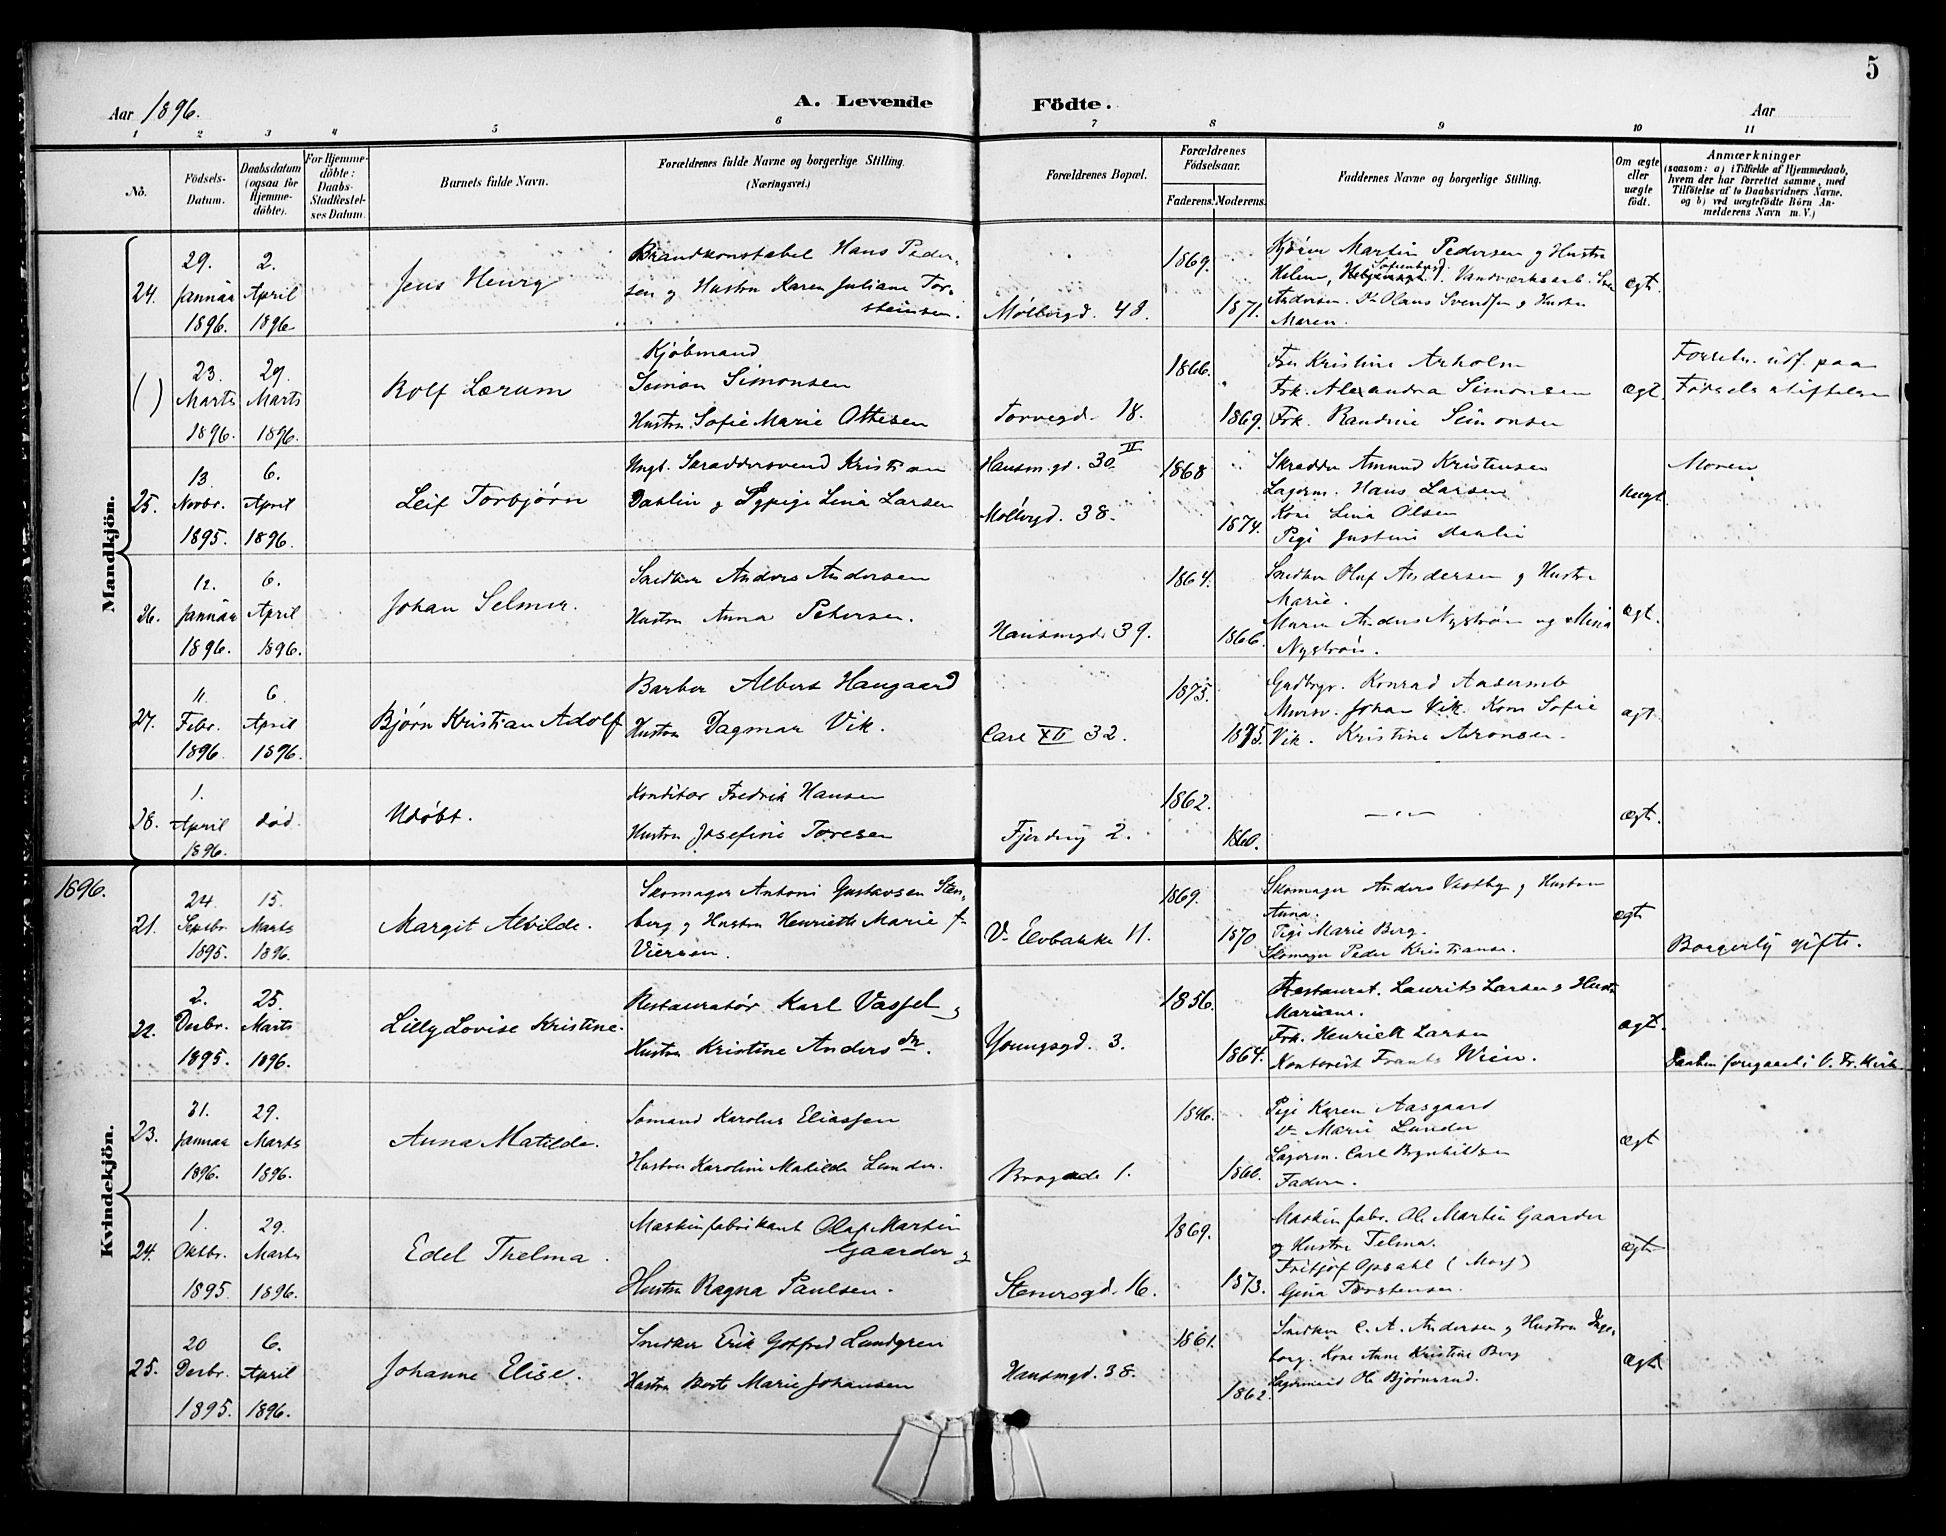 5
Aar 1896.
A. Levende Födte.
Aar
1 2 3 4 5 6 7 8 9 10 11
Nô.
Födsels-Datum.
Daabsdatum (ogsaa for Hjemme-döbte).
For Hjemme-döbte: Daabs-Stadfæstel-ses Datum.
Barnets fulde Navn.
Forældrenes fulde Navne og borgerlige Stilling.
(Næringsvei.)
Forældrenes Bopæl.
Forældrenes Födselsaar.
Faderens. Moderens.
Faddernes Navne og borgerlige Stilling.
Om ægte eller uægte födt.
Anmærkninger
(saasom: a) i Tilfælde af Hjemmedaab,
hvem der har forrettet samme, med
Tilföielse af to Daabsvidners Navne.
og b) ved uægtefödte Börn An-
melderens Navn m. V.)
Mandkjön.
24.
29. Januar 1896.
2. April 1896.
Jens Henry
Brandkonstabel Hans Peder-
sen og Hustru Karen Juliane Tor-
steinsen.
Møllergd. 48.
1869.
1871.
Kjører Martin Pedersen og Hustru
Helene, Sofienberg. Vandværksarb.
Andersen. Olaus Svendsen og Hustru
Maren.
ægt.
( )
23. Marts 1896.
29. Marts 1896.
Rolf Lærum
Kjøbmand
Simon Simonsen
Hustru Sofie Marie Ottesen
Torvegd. 18.
1866.
1869.
Fru Kristine Arholm
Frk. Alexandra Simonsen
Frk. Randine Simonsen
ægt.
Forretn. udf. paa
Fødselsstiftelsen
25.
13. Novbr. 1895.
6. April 1896.
Leif Torbjørn
Ungk. Skraddersvend Kristian
Dahlin og Pige Lina Larsen
Hausm.gd. 30 II
Møllergd. 38.
1868
1874.
Skradder Amund Kristensen
Lagerm. Hans Larsen
Kone Lina Olsen
Pige Justine Dahlin
uægt.
Moren
26.
12. Januar 1896.
6. April 1896.
Johan Selmer.
Snedker Anders Andersen
Hustru Anna Petersen.
Hausmgd. 39.
1864.
1866.
Snedker Oluf Andersen og Hustru
Marie.
Murer Anders Nystrøm og Mina
Nystrøm.
ægt.
27.
11. Febr. 1896
6. April 1896.
Bjørn Kristian Adolf
Barber Albert Haugaard
Hustru Dagmar Vik.
Carl XII 32.
1875.
1875.
Konrad Aasumb
Johan Vik. Kone Sofie
Vik. Kristine Aronsen.
ægt.
28.
1. April 1896.
død.
Udøbt.
Konditor Fredrik Hansen
Hustru Josefine Toresen
Fjerding 2.
1862.
1860.
— „ —
ægt.
1896.
Kvindekjön.
21.
24. Septbr. 1895.
15. Marts 1896.
Margit Alvilde.
Skomager Antoni Gustavsen Sten-
berg og Hustru Henriette Marie f.
V. Elvbakke 11.
1869.
1870
Skomager Anders Vestby og Hustru
Anna.
Pige Marie Berg.
Skomager Peder Kristiansen.
ægt
Borgerlig gifte.
22.
2. Decbr. 1895.
25. Marts 1896.
Lilly Lovise Kristine.
Restauratør Karl Vassel og
Hustru Kristine Andersdr.
Youngsgd. 3.
1856.
1864.
Restaurat. Laurits Larsen og Hustru
Mariane.
Frk. Henriette Larsen
Kontorist Frants Wien.
ægt.
Daaben foregaaet i V. Fr. Kirke
23.
31. Januar 1896.
29. Marts 1896.
Anna Matilde.
Sømand Karolus Eliassen
Hustru Karoline Matilde Lunder.
Brogade 1.
1846.
1860.
Pige Karen Aasgaard
Marie Lunder
Lagerm. Carl Brynhildsen
Faderen.
ægt
24.
1. Oktbr. 1895.
29. Marts 1896.
Edel Thelma.
Maskinfabrikant Olaf Martin
Gaarder og
Hustru Ragna Paulsen.
Stenersgd. 16.
1869.
1873.
Maskinfabr. Ole Martin Gaarder
og Hustru Telma.
Fritjof Opsahl
Gina Torstensen.
ægte
25.
20 Decbr. 1895.
6. April 1896.
Johanne Elise.
Snedker Erik Gotfred Lundgren
Hustru Berte Marie Johansen
Hausmgd. 38.
1861.
1862.
Snedker C. A. Andersen og Hustru Inge-
borg. Kone Anne Kristine Berg
Ole Bjørnerud.
ægt